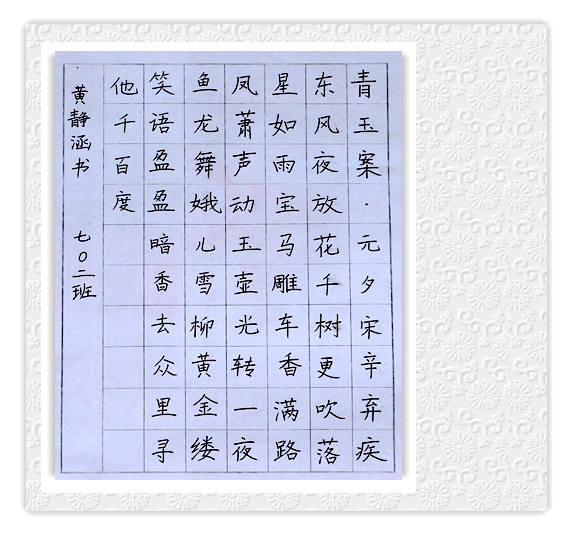 青玉案·元夕宋辛弃疾
东风夜放花千树更吹落
星如雨宝马雕车香满路
凤萧声动玉壶光转一夜
鱼龙舞娥儿雪柳黄金缕
笑语盈盈暗香去众里寻
他千百度
黄静涵书 七〇二班